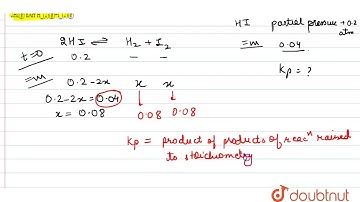 2HI ⇌ H₂ + I₂
t=0 0.2 — —
=m 0.2-2x x x
0.2-2x = 0.04
x = 0.08 0.08 0.08
HI partial pressure → 0.2 atm
=m 0.04
Kp = ?
Kp = product of products of reacⁿ raised
to stoichiometry
doubtnut